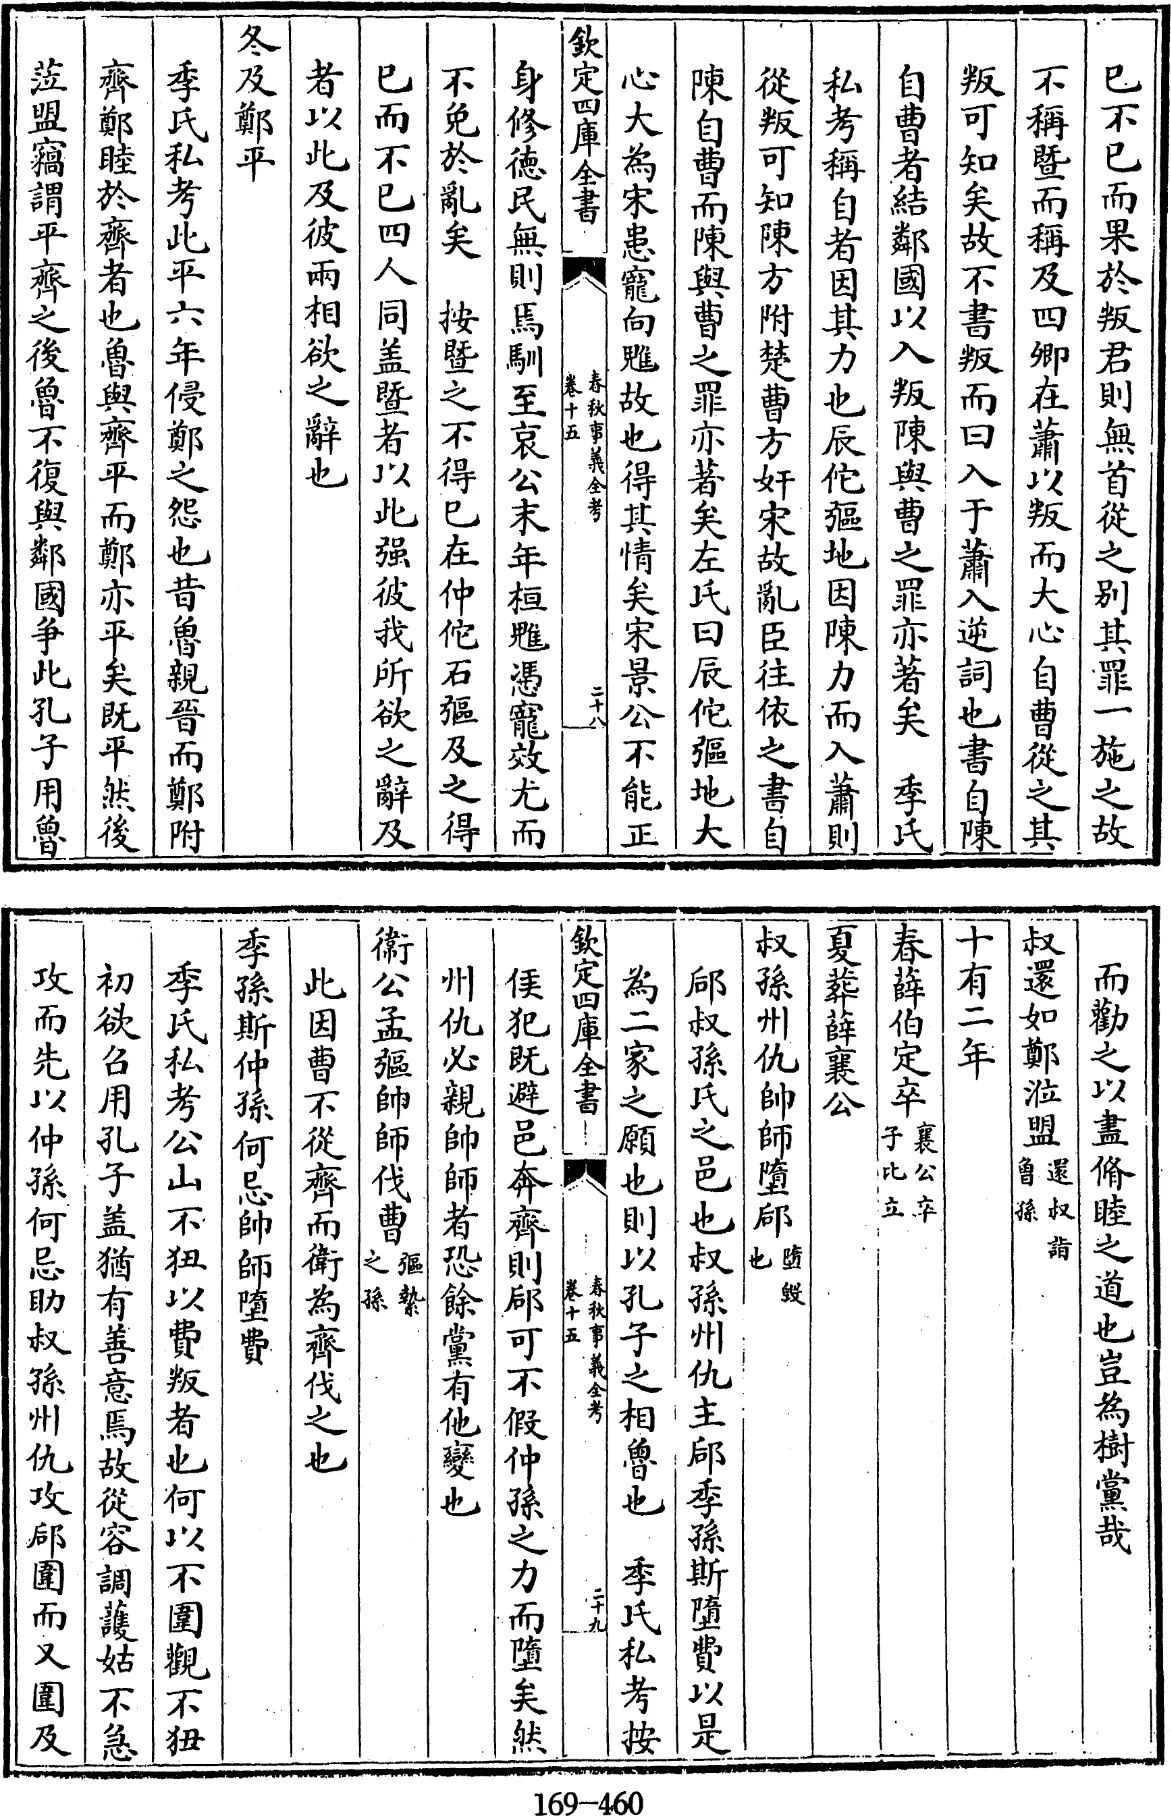 已不已而果於叛君則無首從之别其罪一施之故
不稱暨而稱及四卿在蕭以叛而大心自曹從之其
叛可知矣故不書叛而曰入于蕭入逆詞也書自陳
自曹者結鄰國以入叛陳與曹之罪亦著矣　季氏
私考稱自者因其力也辰佗彄地因陳力而入蕭則
從叛可知陳方附楚曹方奸宋故亂臣往依之書自
陳自曹而陳與曹之罪亦著矣左氏曰辰佗彄地大
心大為宋患寵向魋故也得其情矣宋景公不能正
欽定四庫全書
春秋事義全考
卷十五
二十八
身修德民無則焉馴至哀公末年桓魋憑寵效尤而
不免於亂矣　按暨之不得已在仲佗石彄及之得
已而不已四人同盖暨者以此强彼我所欲之辭及
者以此及彼兩相欲之辭也
冬及鄭平
季氏私考此平六年侵鄭之怨也昔魯親晉而鄭附
齊鄭睦於齊者也魯與齊平而鄭亦平矣既平然後
涖盟竊謂平齊之後魯不復與鄰國爭此孔子用魯
而勸之以盡脩睦之道也豈為樹黨哉
叔還如鄭涖盟還叔詣魯孫
十有二年
春薛伯定卒襄公卒子比立
夏葬薛襄公
叔孫州仇帥師墮郈墮毀也
郈叔孫氏之邑也叔孫州仇主郈季孫斯墮費以是
為二家之願也則以孔子之相魯也　季氏私考按
欽定四庫全書
春秋事義全考
卷十五
二十九
侯犯既避邑奔齊則郈可不假仲孫之力而墮矣然
州仇必親帥師者恐餘黨有他變也
衛公孟彄帥師伐曹彄縶之孫
此因曹不從齊而衛為齊伐之也
季孫斯仲孫何忌帥師墮費
季氏私考公山不狃以費叛者也何以不圍觀不狃
初欲召用孔子盖猶有善意焉故從容調護姑不急
攻而先以仲孫何忌助叔孫州仇攻郈圍而又圍及
169-460